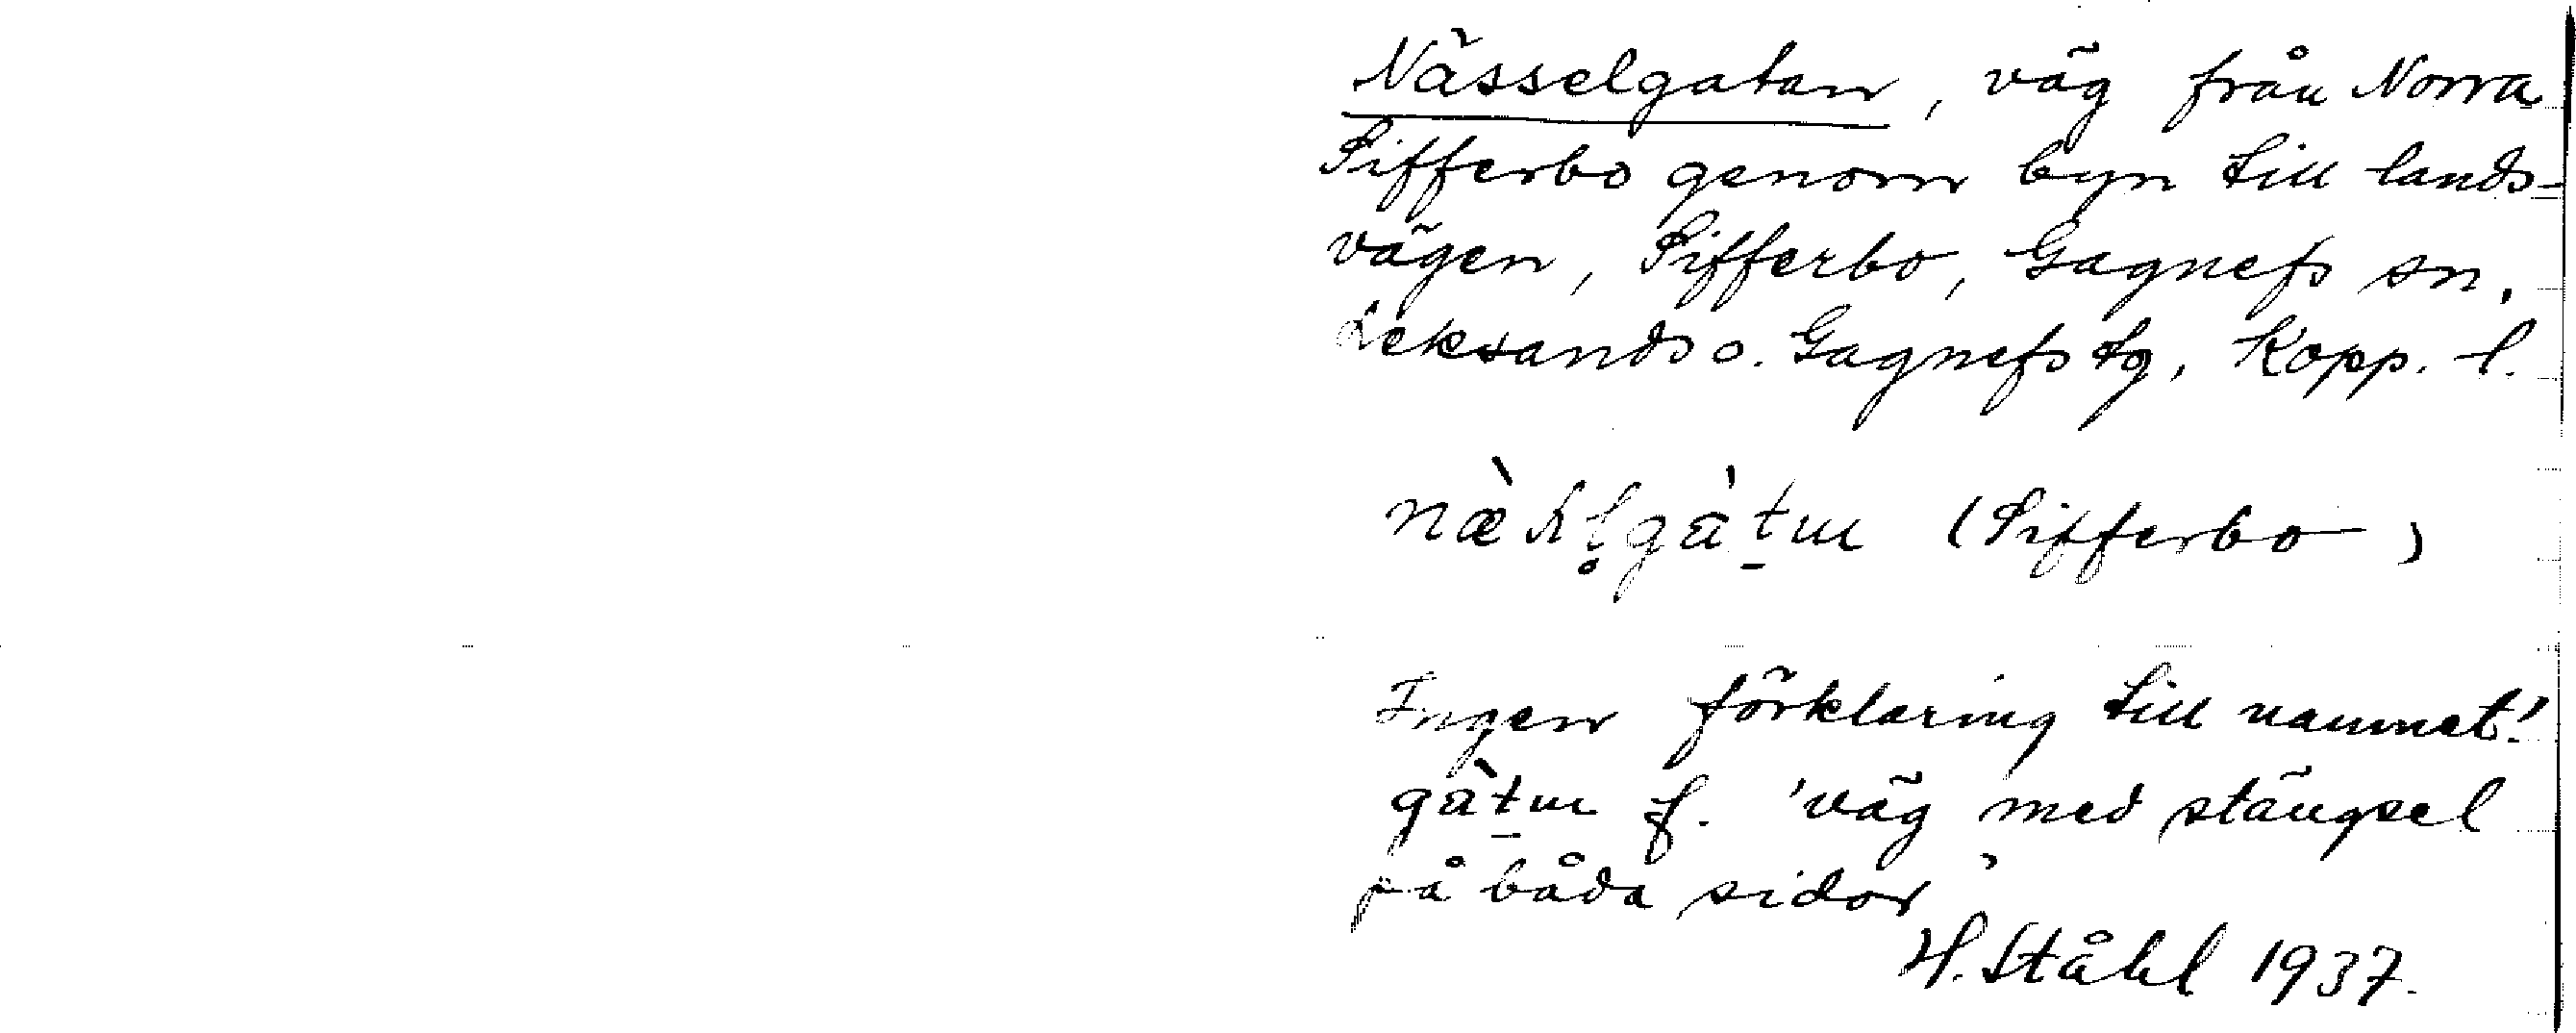 Nässelgatan, väg från Norra
Sifferbo genom byn till lands-
vägen, Sifferbo, Gagnefs sn,
Leksands o. Gagnefs tg, Kopp. l.
(Sifferbo)
Ingen förklaring till namnet!
gàt̠ɯ f. 'väg med stängsel
på båda sidor'
H. Ståhl 1937.